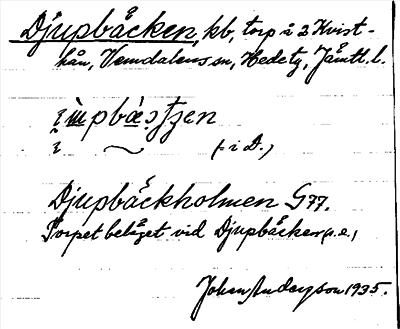 Djupbäcken, kb, torp i 2 Kvist-
hån, Vemdalens sn, Hede tg, Jämtl. l.
(- i D.)
Djupbäckholmen G77.
Torpet beläget vid Djupbäcken (s.e.)
Johan Anderzson 1935.